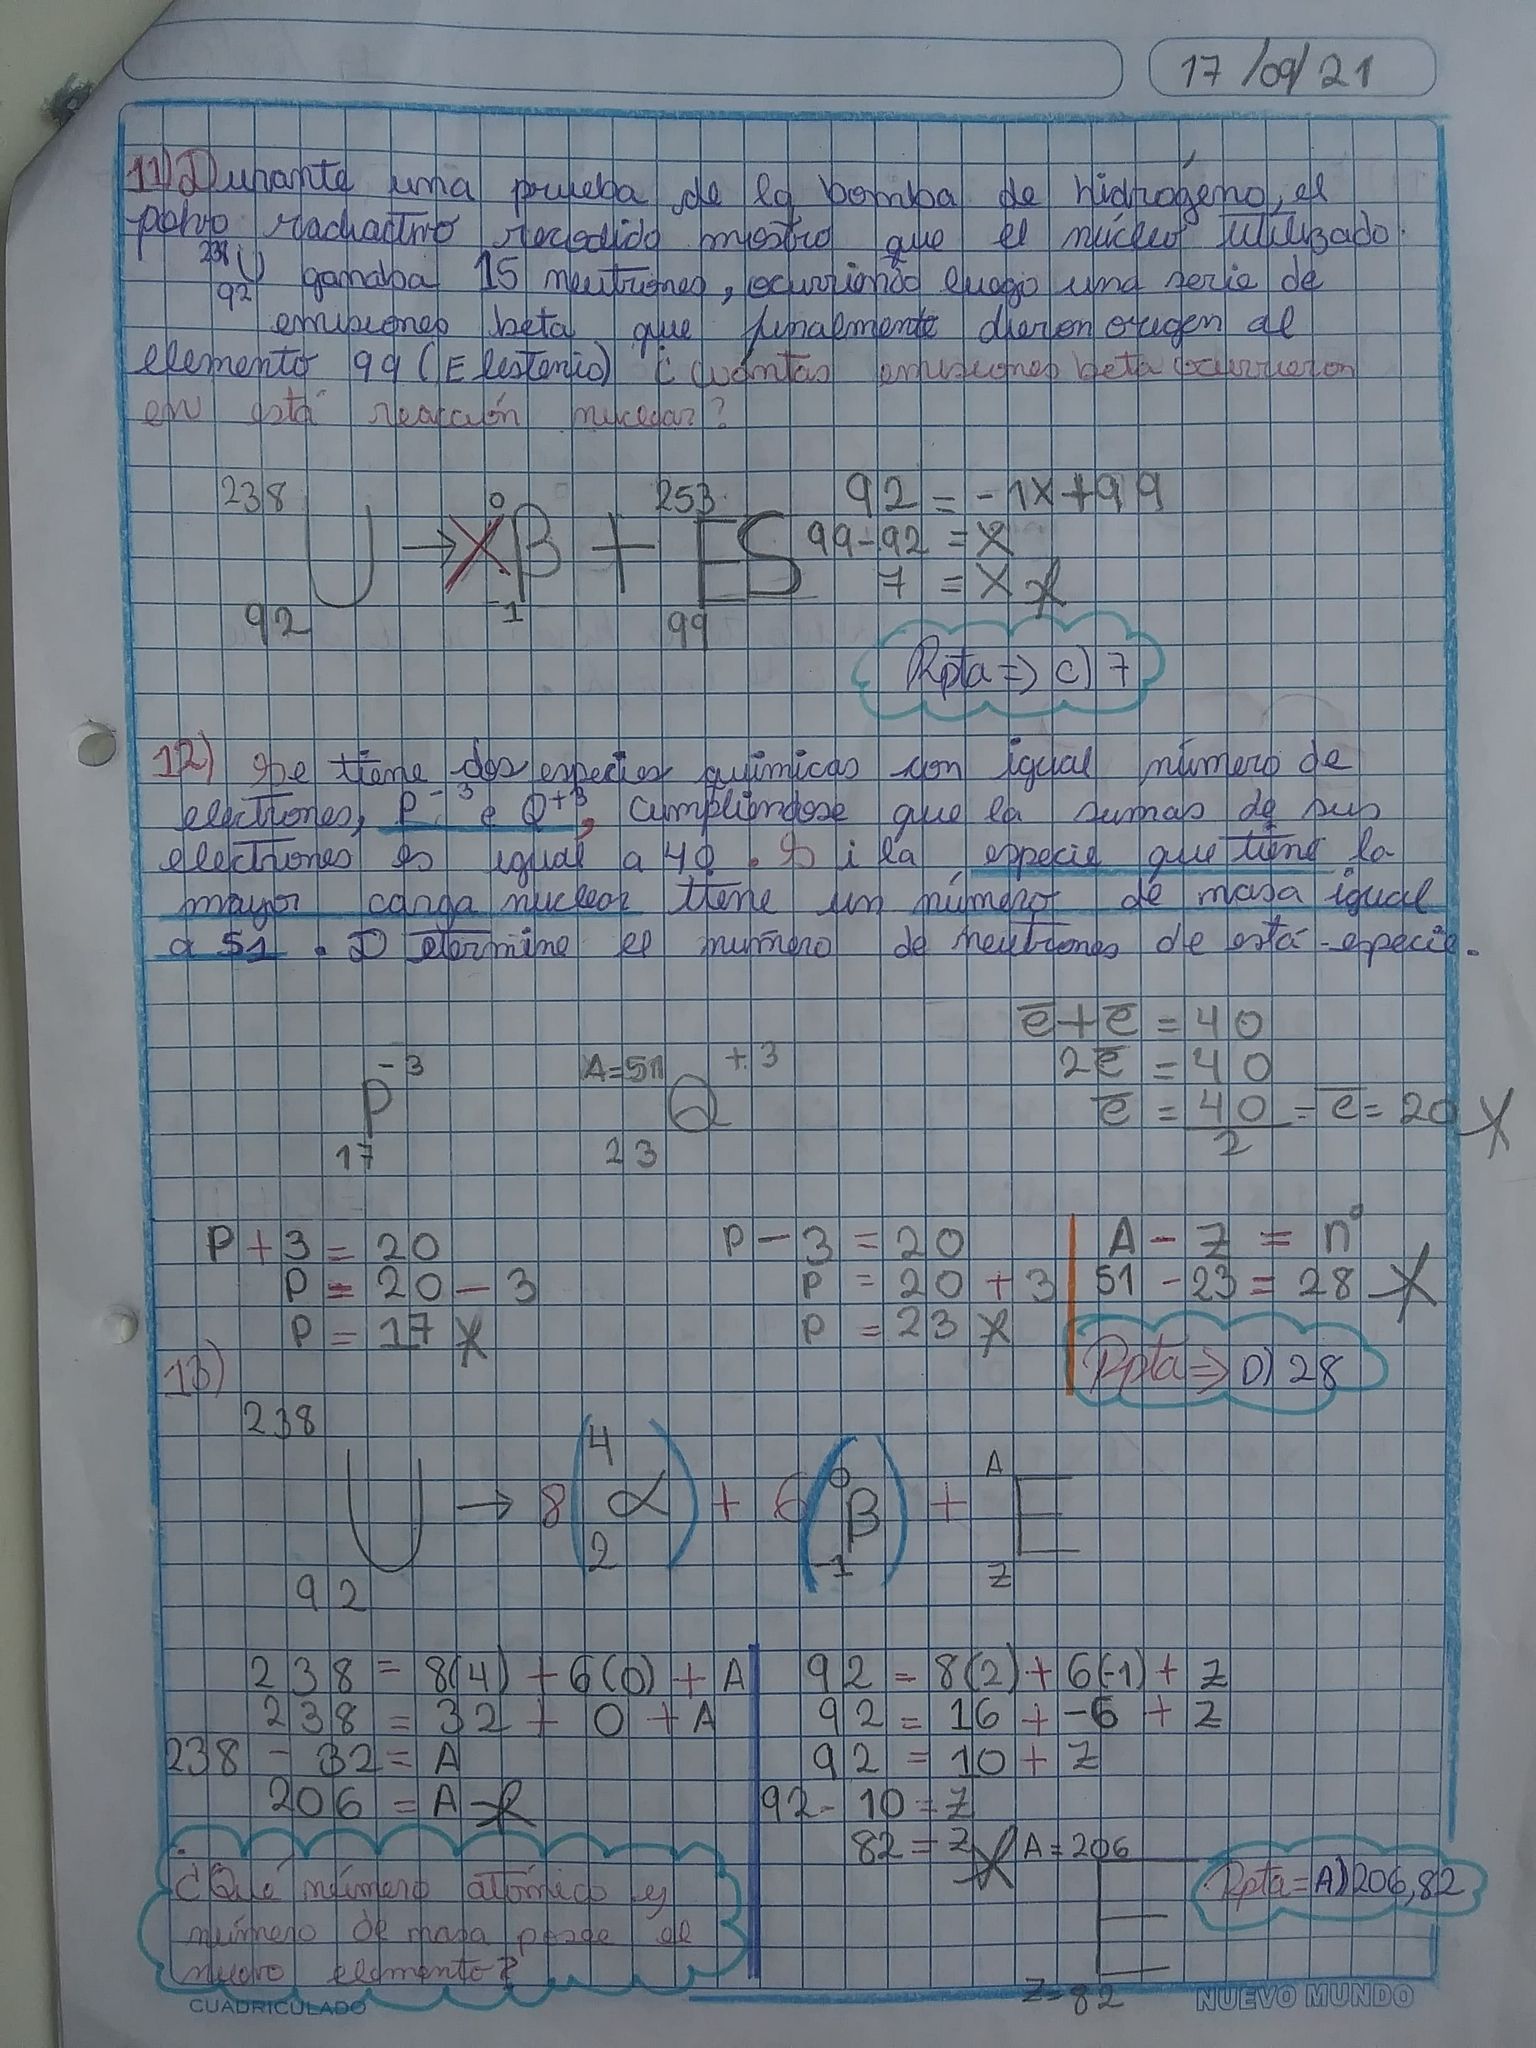 17/09/21
11) Durante una prueba de la bomba de hidrógeno, el
polvo radiactivo recogido mostro que el núcleo utilizado.
238
U ganaba 15 neutrones, ocurriendo luego una serie de
92
emisiones beta que finalmente dieron origen al
elemento 99 (E lestenio) ¿Cuántas emisiones beta ocurrieron
en está reacción nuclear?
238 0 253 92 = -1X+99
U → X β + ES 99-92 = X
92 -1 99 7 = X
Rpta => C) 7
12) Se tiene dos especies quimicas con igual número de
electrones, P⁻³ e Q⁺³, cumpliendose que la sumas de sus
electrones es igual a 40. Si la especie que tiene la
mayor carga nuclear tiene un número de masa igual
a 51. Determine el número de neutrones de está especie.
e̅ + e̅ = 40
-3 A=51 +3 2e̅ = 40
P Q e̅ = 40 = e̅ = 20
17 23 2
P + 3 = 20 P - 3 = 20 A - Z = n°
P = 20 - 3 P = 20 + 3 51 - 23 = 28
P = 17 P = 23
Rpta => D) 28
13)
238 4 0 A
U → 8( α ) + 6( β ) + E
92 2 -1 Z
238 = 8(4) + 6(0) + A 92 = 8(2) + 6(-1) + Z
238 = 32 + 0 + A 92 = 16 + -6 + Z
238 - 32 = A 92 = 10 + Z
206 = A 92 - 10 = Z
82 = Z A = 206
E
Z=82
Rpta = A) 206, 82
¿Qué número atómico y
número de masa posee el
nuevo elemento?
CUADRICULADO NUEVO MUNDO